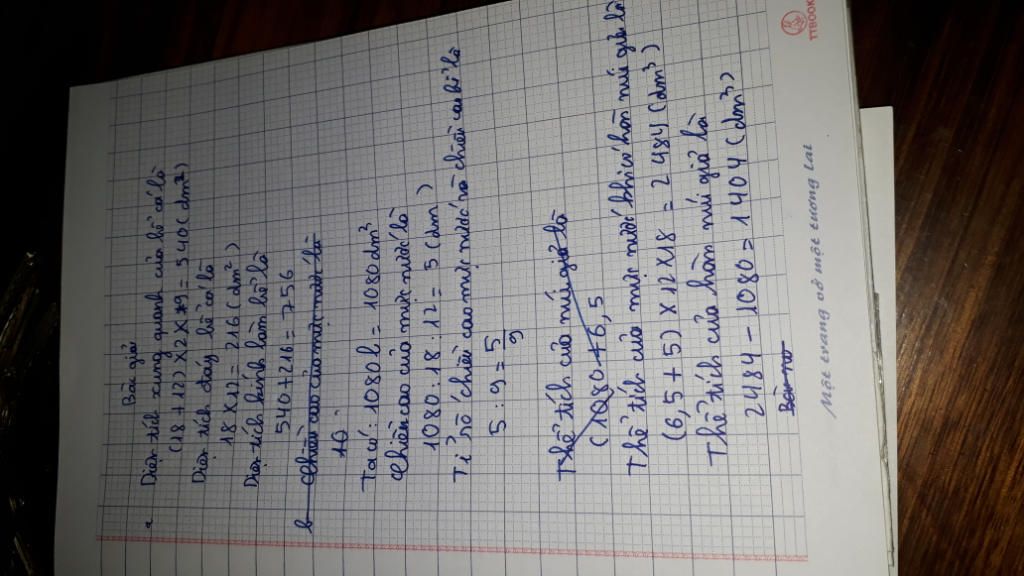 Bài giải
a Diện tích xung quanh của bể cá là
(18 + 12) × 2 × 9 = 540 (dm²)
Diện tích đáy bể cá là
18 × 12 = 216 (dm²)
Diện tích kính làm bể là
540 + 216 = 756
b Chiều cao của mực nước là
10
Ta có: 1080 l = 1080 dm³
Chiều cao của mực nước là
1080 : 18 : 12 = 5 (dm)
Tỉ số chiều cao mực nước và chiều cao bể là
5 : 9 = 5/9
Thể tích của núi giả là
(1080 + 6,5
Thể tích của mực nước khi có hòn núi giả là
(6,5 + 5) × 12 × 18 = 2484 (dm³)
Thể tích của hòn núi giả là
2484 - 1080 = 1404 (dm³)
Một trang vở một tương lai
TTBOOK